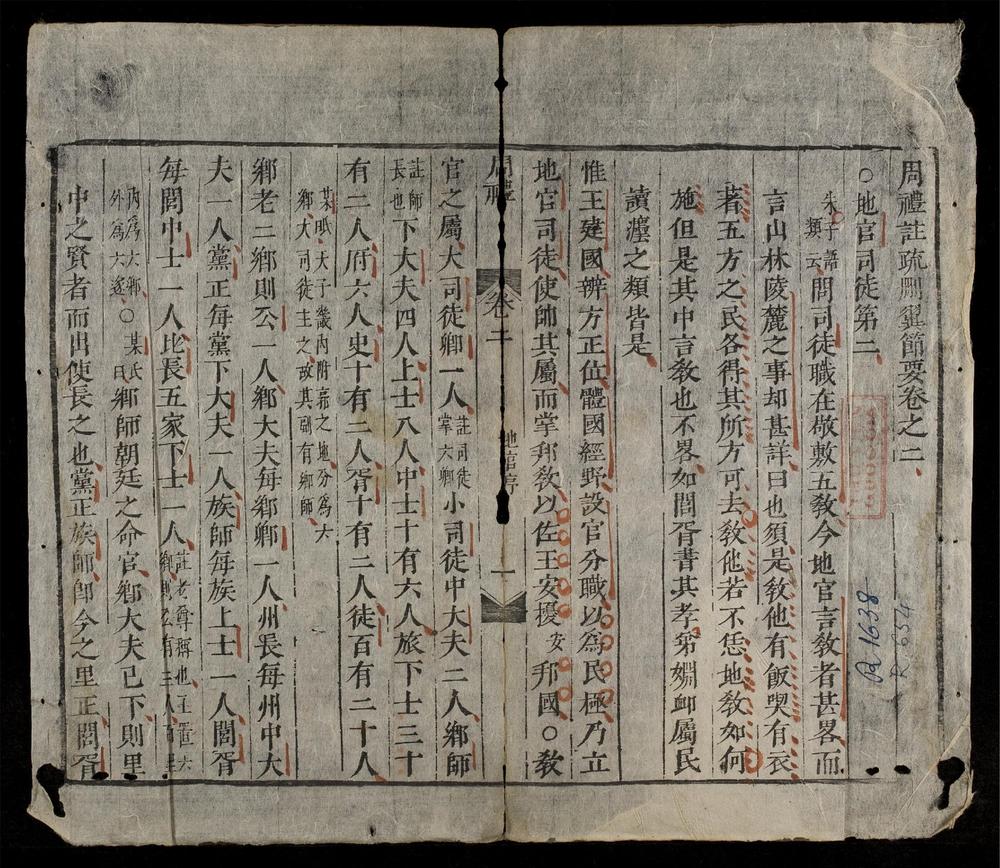 周禮註疏刪翼節要卷之二
○地官司徒第二
朱子語類云問司徒職在敬敷五敎今地官言敎者甚畧而
言山林陵麓之事却甚詳曰也須是敎他有飯喫有衣
著五方之民各得其所方可去敎他若不恁地敎如何
施但是其中言敎也不畧如閭胥書其孝弟婣卹屬民
讀灋之類皆是
惟王建國辨方正位體國經野設官分職以爲民極乃立
地官司徒使帥其屬而掌邦敎以佐王安擾安邦國○敎
周禮 卷二 地官序 一
官之屬大司徒卿一人註司徒掌六鄉小司徒中大夫二人鄉師
註師長也下大夫四人上士八人中士十有六人旅下士三十
有二人府六人史十有二人胥十有二人徒百有二十人
某氏天子畿內附郭之地分爲六鄉大司徒主之故其副有鄉師
鄉老二鄉則公一人鄉大夫每鄉卿一人州長每州中大
夫一人黨正每黨下大夫一人族師每族上士一人閭胥
每閭中士一人比長五家下士一人註老尊稱也王置六鄉則公有三人
內爲六鄉外爲六遂○某氏曰鄉師朝廷之命官鄉大夫已下則里
中之賢者而出使長之也黨正族師即今之里正閭胥
A 1638
R 654